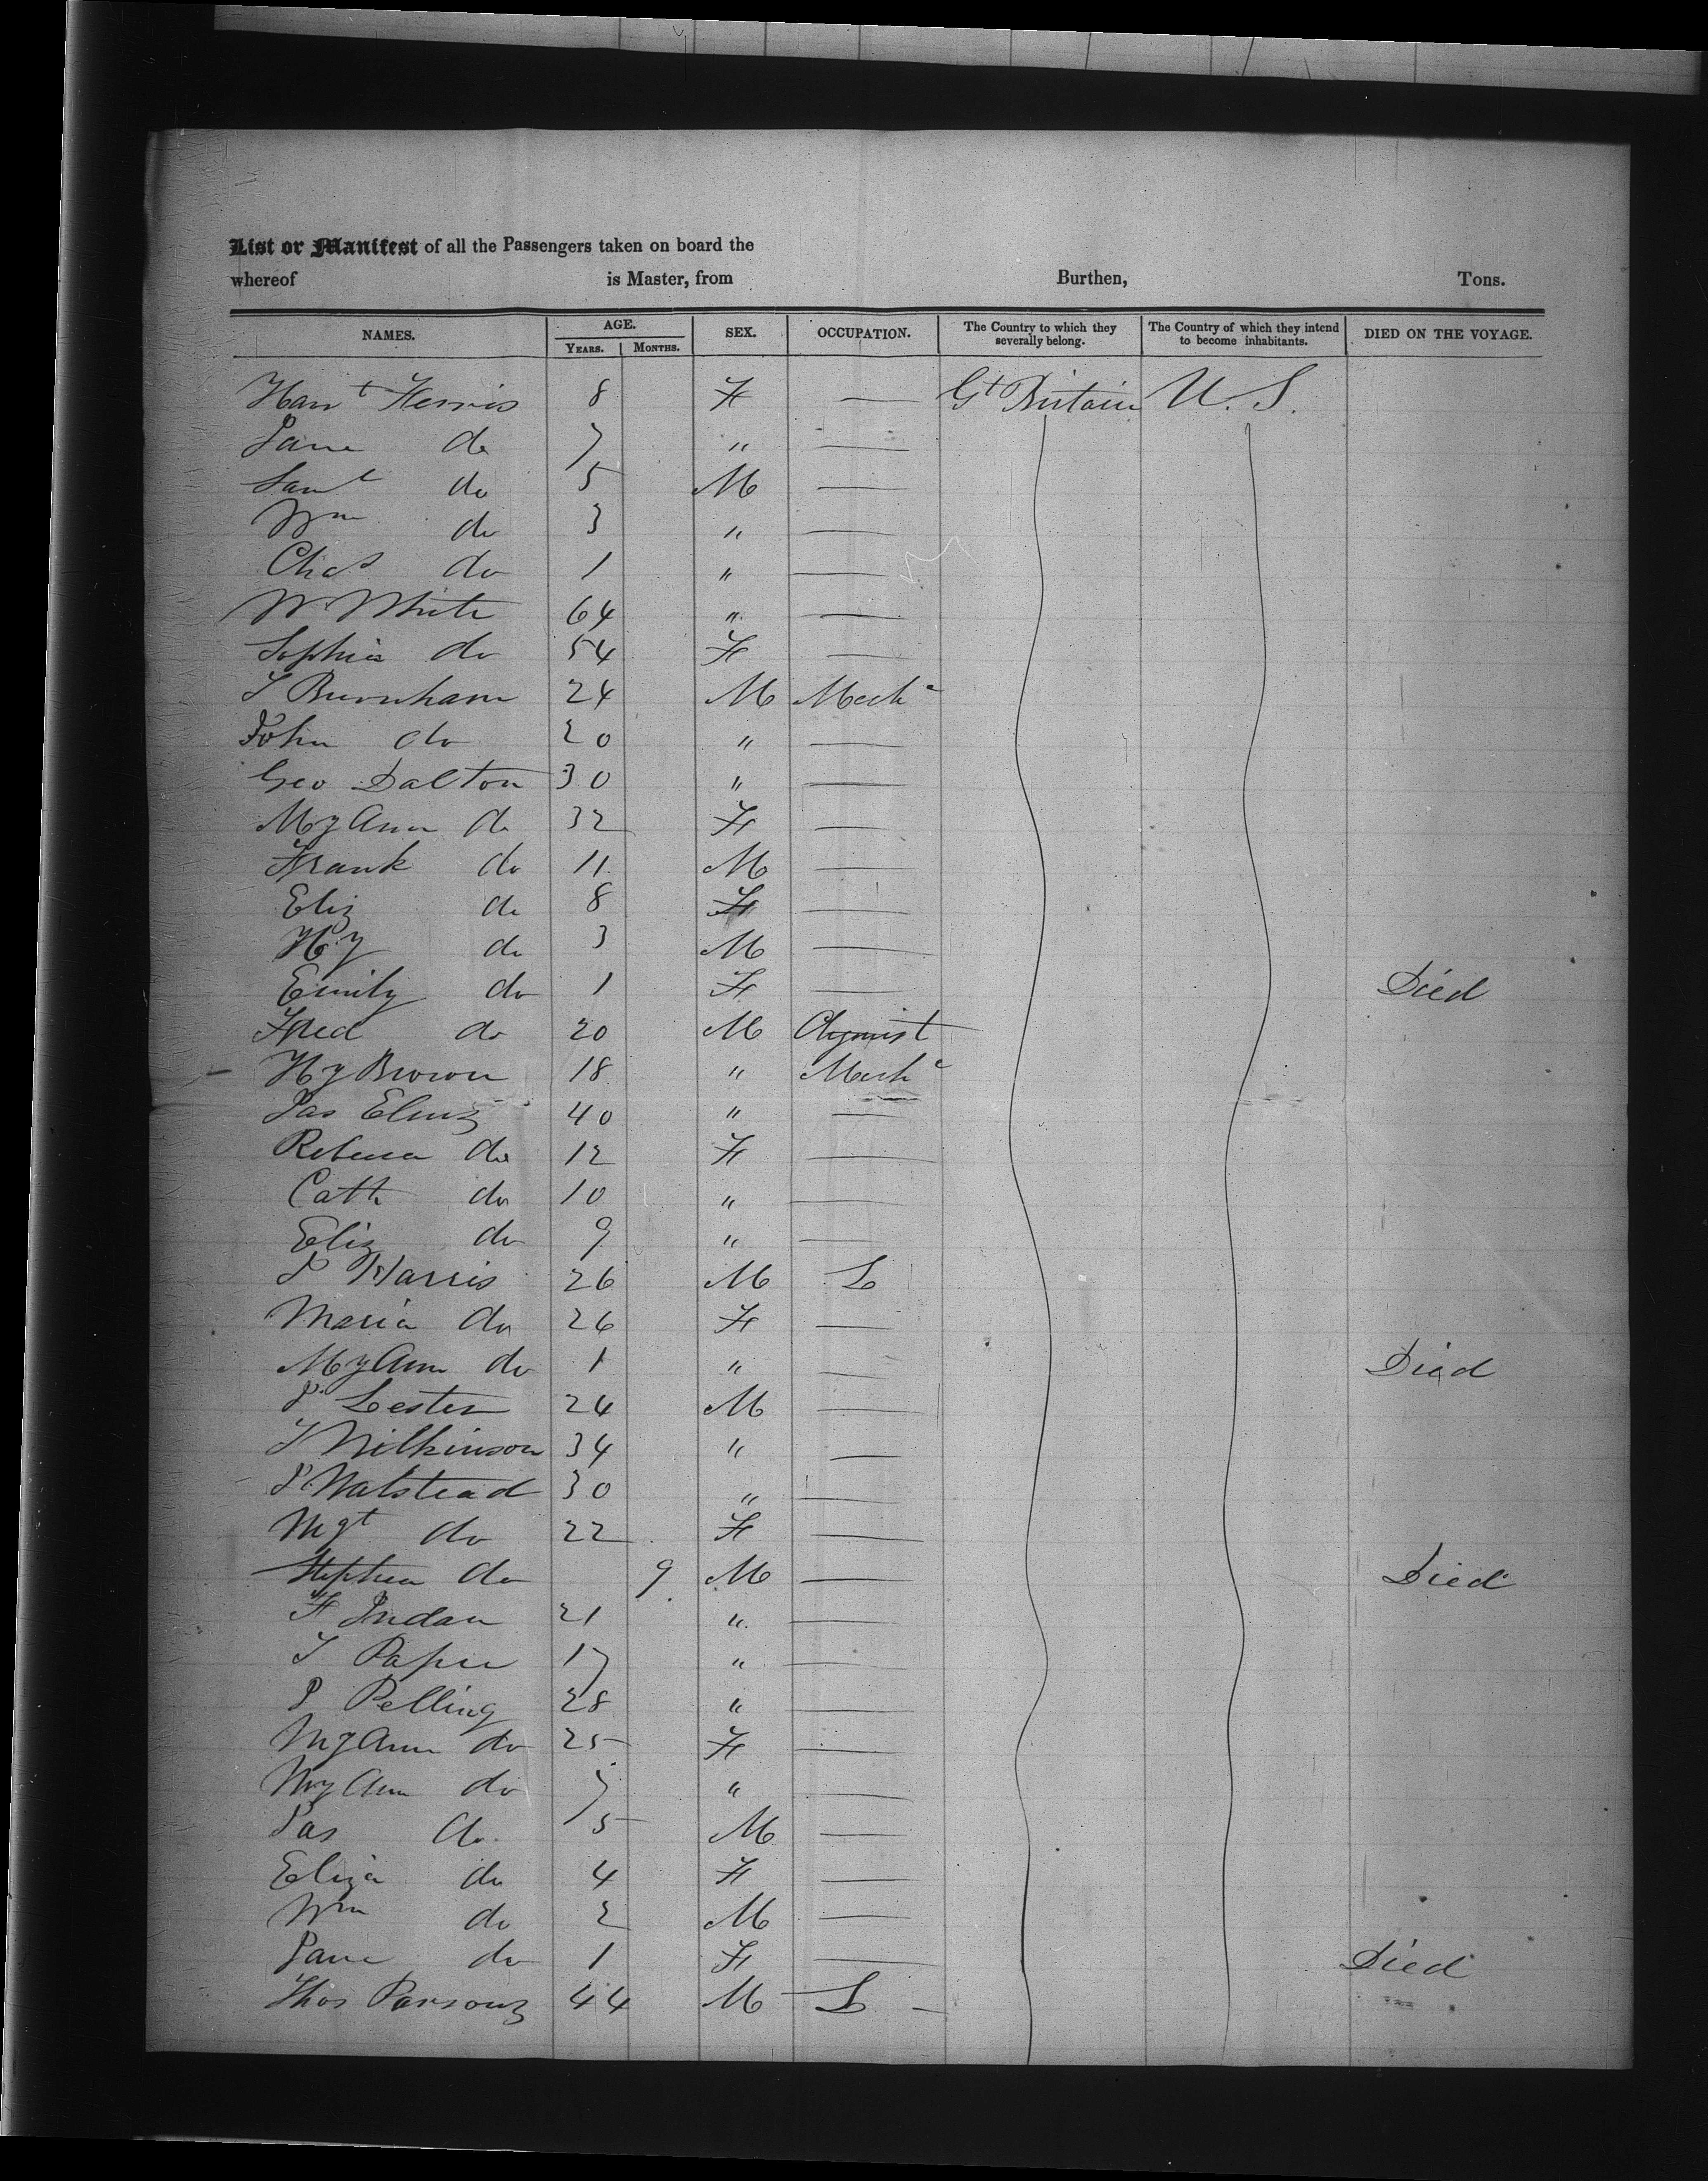 List or Manifest of all the Passengers taken on board the
whereof is Master, from Burthen, Tons.
NAMES. AGE. YEARS. MONTHS. SEX. OCCUPATION. The Country to which they severally belong. The Country of which they intend to become inhabitants. DIED ON THE VOYAGE.
Harrt 8 F — Gt Britain U. S.
Jane do 7 " —
Saml do 5 M —
Wm do 3 " —
Chas do 1 " —
W White 64 " —
Sophia do 54 F —
T Burnham 24 M Mechc
John do 20 " —
Geo Dalton 30 " —
My Ann do 32 F —
Frank do 11 M —
Eliz do 8 F —
Hy do 3 M —
Emily do 1 F — Died
Fred do 20 M Chymist
Hy Brown 18 " Mechc
Jas 40 " —
Rebecca do 12 F —
Cath do 10 " —
Eliz do 9 " —
J Harris 26 M L
Maria do 26 F —
My Ann do 1 " — Died
J Lester 24 M —
T Wilkinson 34 " —
J Walstead 30 " —
Mgt do 22 F —
Stephen do 9 M — Died
F 21 " —
T 17 " —
J Pelling 28 " —
My Ann do 25 F —
My Ann do 7 " —
Jas do 5 M —
Eliza do 4 F —
Wm do 2 M —
Jane do 1 F — Died
Thos Parsons 44 M L —